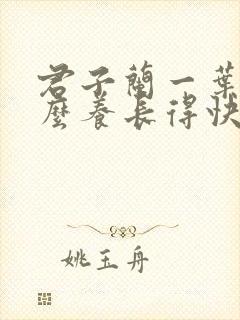 君子蘭一葉
麼養長得快
姚玉舟